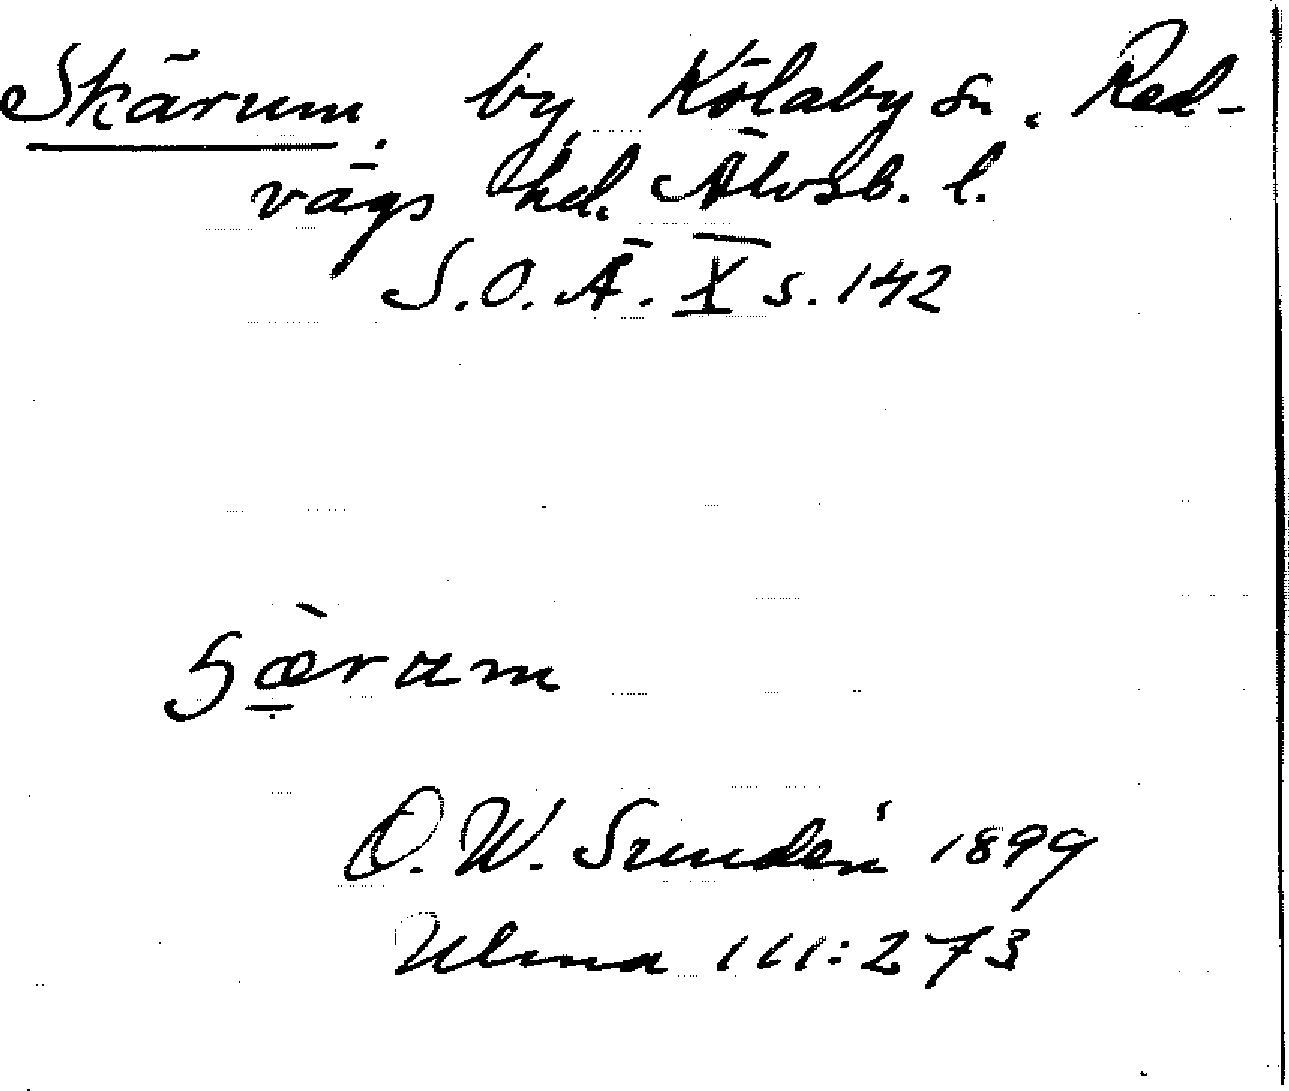 Skärum, by, Kölaby sn, Red-
vägs hd. Älvsb. l.
S.O.Ä. X s. 142
ʃæ̀ram
O. W. Sundén 1899
Ulma 111:273